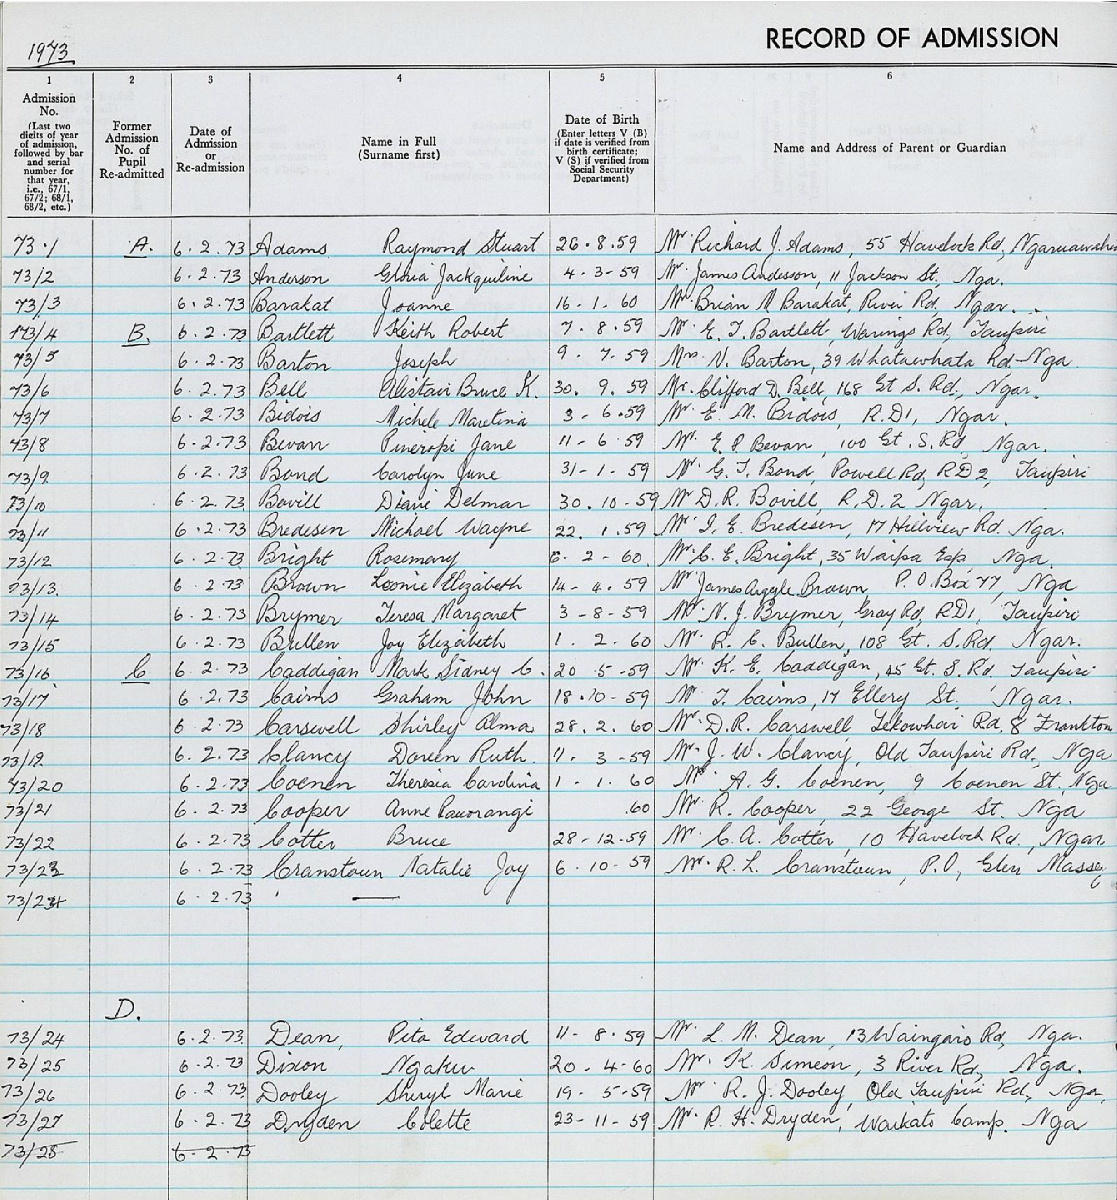 1973
RECORD OF ADMISSION
1 2 3 4 5 6
Admission No. (Last two digits of year of admission, followed by bar and serial number for that year, i.e., 67/1, 67/2; 68/1, 68/2, etc.)
Former Admission No. of Pupil Re-admitted
Date of Admission or Re-admission
Name in Full (Surname first)
Date of Birth (Enter letters V (B) if date is verified from birth certificate; V (S) if verified from Social Security Department)
Name and Address of Parent or Guardian
73.1 A. 6.2.73 Adams Raymond Stuart 26.8.59 Mr Richard J. Adams, 55 Havelock Rd, Ngaruawahia
73/2 6.2.73 Anderson Gloria Jackquiline 4-3-59 Mr James Anderson, 11 Jackson St, Nga.
73/3 6.2.73 Barakat Joanne 16-1.60 Mr Brian N Barakat, River Rd, Ngar.
73/4 B. 6.2.73 Bartlett Keith Robert 7.8.59 Mr E. T. Bartlett, Warings Rd, Taupiri
73/5 6.2.73 Barton Joseph 9.7.59 Mrs V. Barton, 39 Whatawhata Rd Nga
73/6 6.2.73 Bell Alistair Bruce K. 30.9.59 Mr Clifford D. Bell, 168 Gt S. Rd, Ngar.
73/7 6.2.73 Bidois Michele Maretina 3-6.59 Mr E. M. Bidois, R.D1, Ngar.
73/8 6.2.73 Bevan Pineropi Jane 11-6.59 Mr. E. P. Bevan, 100 Gt. S. Rd, Ngar.
73/9 6.2.73 Bond Carolyn June 31-1.59 Mr G. T. Bond, Powell Rd, RD2, Taupiri
73/10 6.2.73 Bovill Diane Delmar 30.10-59 Mr D. R. Bovill, R.D.2 Ngar.
73/11 6.2.73 Bredesen Michael Wayne 22.1.59 Mr I. E. Bredesen, 17 Hillview Rd. Nga.
73/12 6.2.73 Bright Rosemary 6-2-60 Mr C. E. Bright, 35 Waipa Esp Nga.
73/13. 6.2.73 Brown Leonie Elizabeth 14-4.59 Mr James Argyle Brown, P.O. Box 77, Nga
73/14 6.2.73 Brymer Teresa Margaret 3-8-59 Mr N. J. Brymer, Gray Rd, RD1, Taupiri
73/15 6.2.73 Bullen Joy Elizabeth 1.2.60 Mr R. E. Bullen, 108 Gt. S. Rd. Ngar.
73/16 C 6.2.73 Caddigan Mark Sidney C. 20.5-59 Mr K. E. Caddigan, 45 Gt. S. Rd. Taupiri
73/17 6.2.73 Cairns Graham John 18.10-59 Mr T. Cairns, 17 Ellery St. Ngar.
73/18 6.2.73 Carswell Shirley Alma 28.2.60 Mr D.R. Carswell Tekowhai Rd, 8 Frankton
73/19 6.2.73 Clancy Doreen Ruth. 11-3-59 Mr J. W. Clancy, Old Taupiri Rd, Nga
73/20 6.2.73 Coenen Theresia Carolina 1-1.60 Mr. A. G. Coenen, 9 Coenen St, Nga
73/21 6.2.73 Cooper Anne .60 Mr. R. Cooper, 22 George St. Nga
73/22 6.2.73 Cotter Bruce 28-12-59 Mr C. A. Cotter, 10 Havelock Rd., Ngar
73/23 6.2.73 Cranstoun Natalie Joy 6.10-59 Mr. R. L. Cranstoun, P.O, Glen Massey
73/24 6.2.73 —
D.
73/24 6.2.73 Dean, Pita Edward 11-8.59 Mr L. M. Dean, 13 Waingaro Rd, Nga.
73/25 6.2.73 Dixon Ngaku 20-4-60 Mr K. Simeon, 3 River Rd, Nga.
73/26 6.2.73 Dooley Sheryl Marie 19.5-59 Mr R. J. Dooley, Old Taupiri Rd, Nga,
73/27 6.2.73 Dryden Colette 23-11-59 Mr R. H. Dryden, Waikato Camp. Nga
73/28 6-2-73